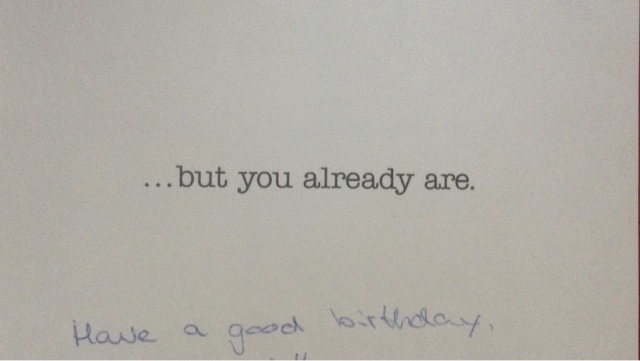 ...but you already are.
Have a good birthday,